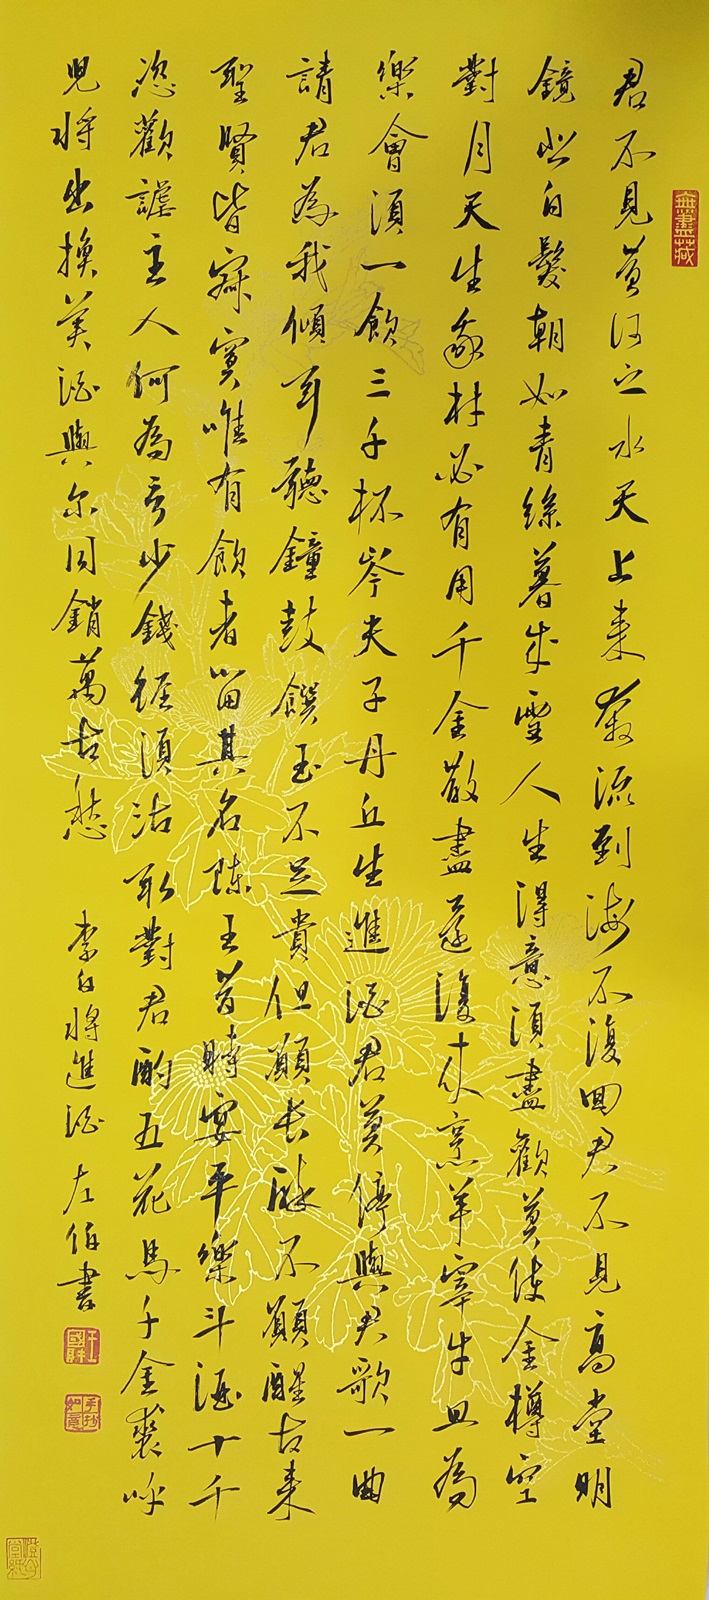 君不見黄河之水天上来奔流到海不復回君不見高堂明
鏡悲白髮朝如青絲暮成雪人生得意須盡歡莫使金樽空
對月天生我材必有用千金散盡還復来烹羊宰牛且為
樂會須一飲三千杯岑夫子丹丘生進酒君莫停與君歌一曲
請君為我傾耳聽鐘鼓饌玉不足貴但願長醉不願醒古来
聖賢皆寂寞唯有飲者留其名陳王昔時宴平樂斗酒十千
恣歡謔主人何為言少錢徑須沽取對君酌五花馬千金裘呼
兒将出換美酒與尔同銷萬古愁
李白将進酒 左伯書
無盡藏